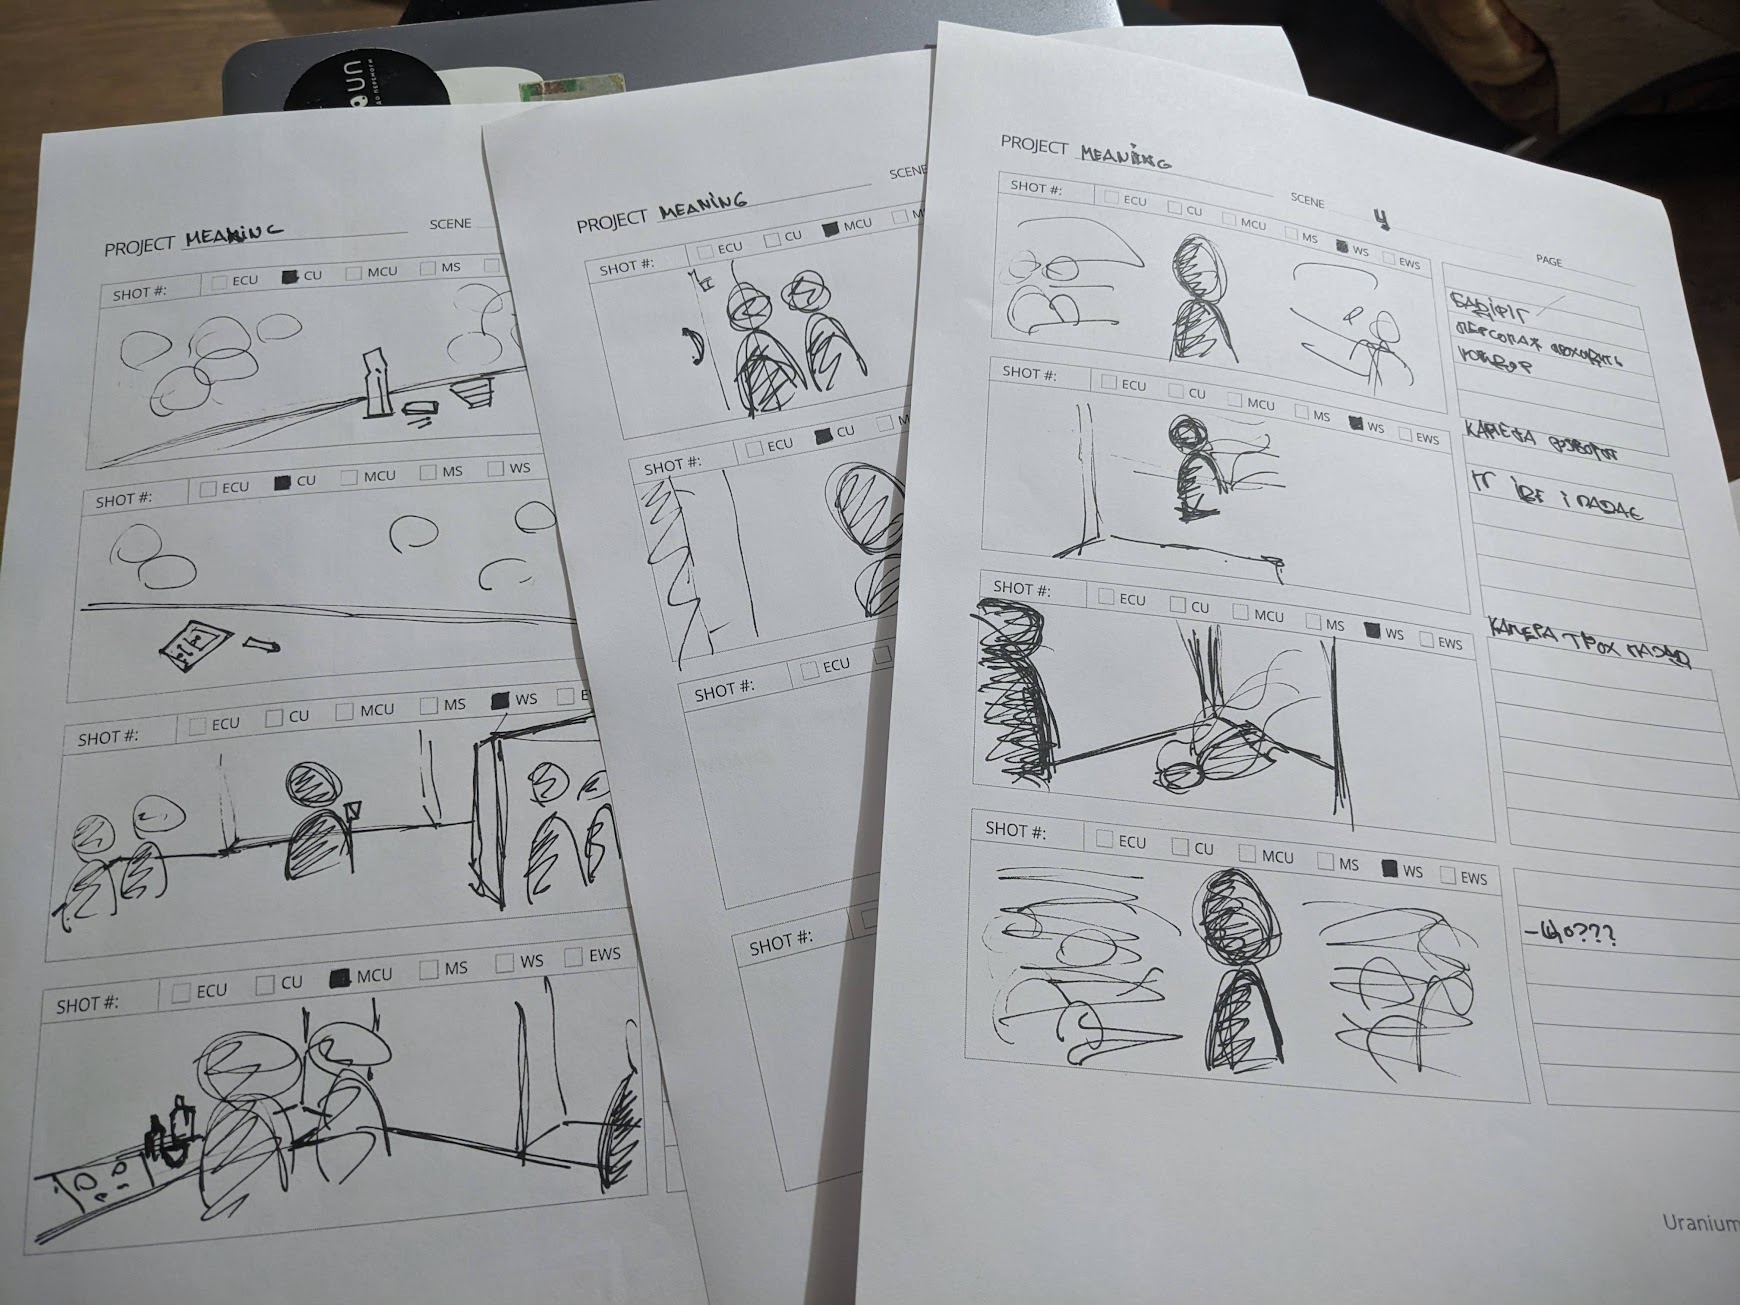 UN
ДО ПЕРЕМОГИ
PROJECT MEANING SCENE
SHOT #: ECU CU MCU MS
SHOT #: ECU CU MCU MS WS
SHOT #: ECU CU MCU MS WS E
SHOT #: ECU CU MCU MS WS EWS
PROJECT MEANING SCENE
SHOT #: ECU CU MCU M
SHOT #: ECU CU M
SHOT #: ECU
SHOT #:
PROJECT MEANING SCENE 4 PAGE
SHOT #: ECU CU MCU MS WS EWS
БАДІРІГ
ПЕРСОНАЖ ПРОХОДИТЬ
SHOT #: ECU CU MCU MS WS EWS
КАМЕРА РОЗВОРОТ
ГГ ІДЕ І ПАДАЄ
SHOT #: ECU CU MCU MS WS EWS
КАМЕРА ТРОХ ПАДАЄ
SHOT #: ECU CU MCU MS WS EWS
-ЩО???
Uranium